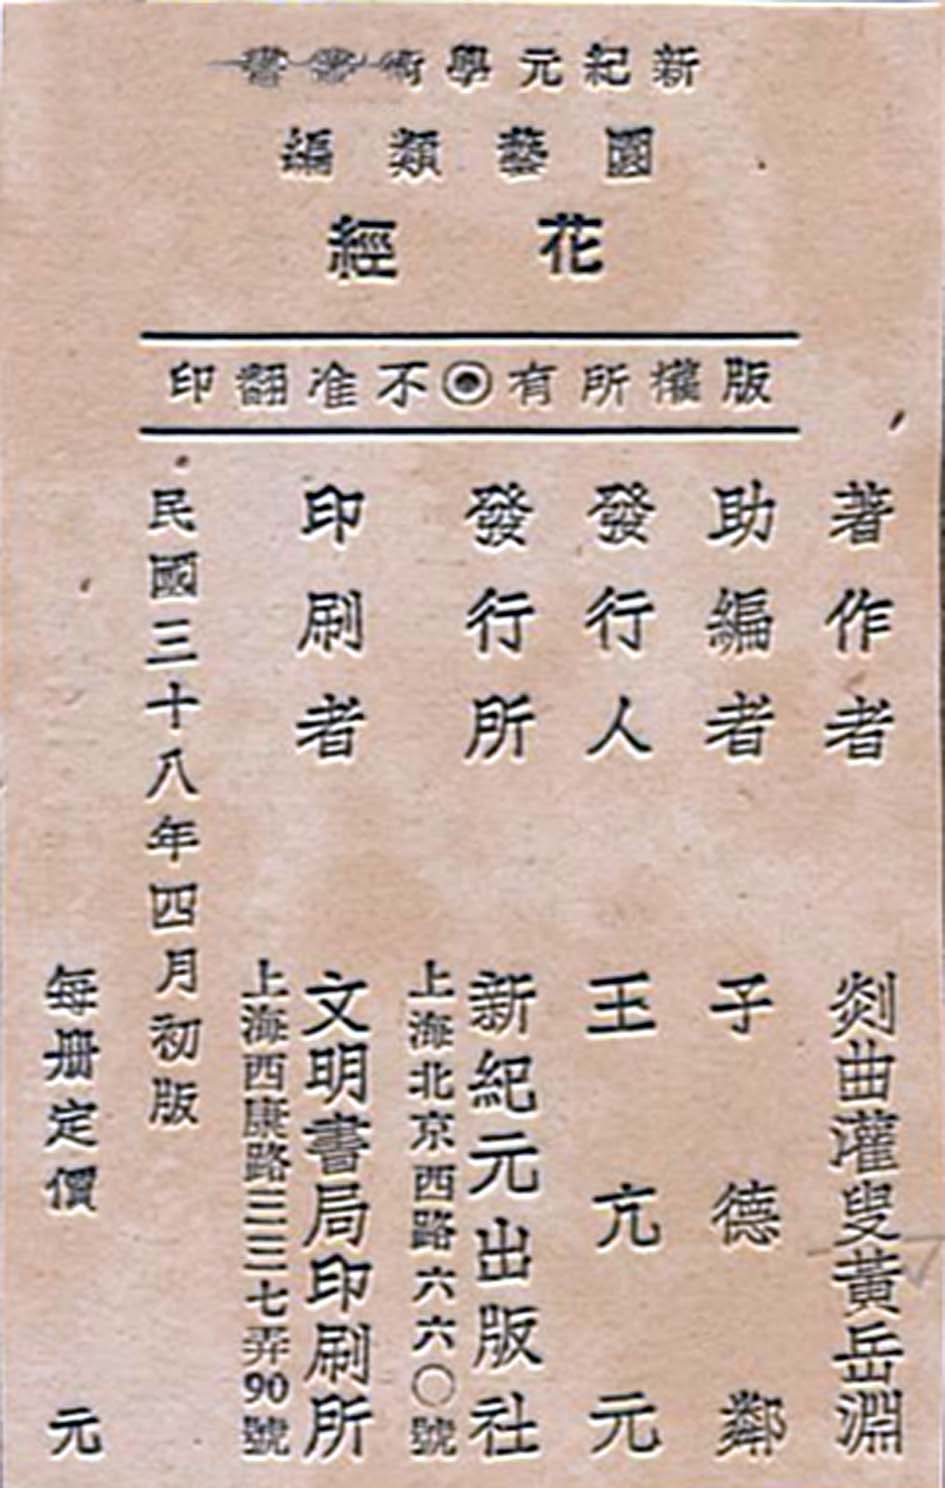 新紀元學術叢書
園藝類編
花經
版權所有◉不准翻印
著作者 剡曲灌叟黃岳淵
助編者 子德鄰
發行人 王亢元
發行所 新紀元出版社
上海北京西路六六〇號
印刷者 文明書局印刷所
上海西康路三三七弄90號
民國三十八年四月初版
每册定價 元